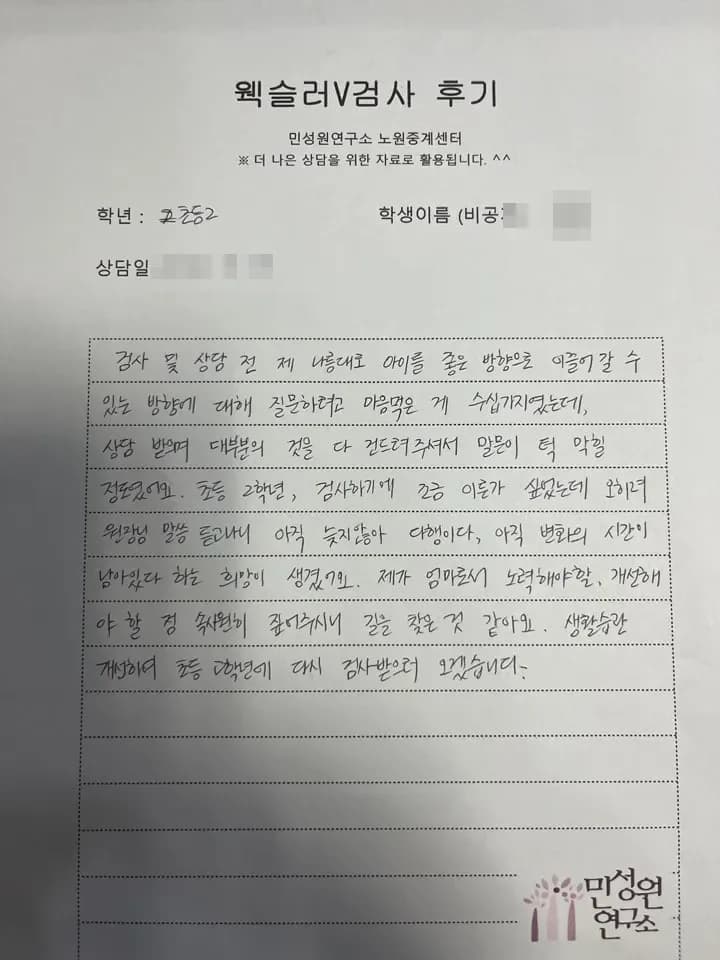 웩슬러V검사 후기
민성원연구소 노원중계센터
※ 더 나은 상담을 위한 자료로 활용됩니다. ^^
학년 : 초등2
학생이름 (비공개
상담일
검사 및 상담 전 제 나름대로 아이를 좋은 방향으로 이끌어 갈 수
있는 방향에 대해 질문하려고 마음먹은 게 수십가지였는데,
상담 받으며 대부분의 것을 다 건드려주셔서 말문이 턱 막힐
정도였어요. 초등 2학년, 검사하기에 조금 이른가 싶었는데 오히려
원장님 말씀 듣고나니 아직 늦지않아 다행이다, 아직 변화의 시간이
남아있다 하는 희망이 생겼어요. 제가 엄마로서 노력해야할, 개선해
야 할 점 속시원히 짚어주시니 길을 찾은 것 같아요. 생활습관
개선하여 초등 학년에 다시 검사받으러 오겠습니다.
민성원
연구소